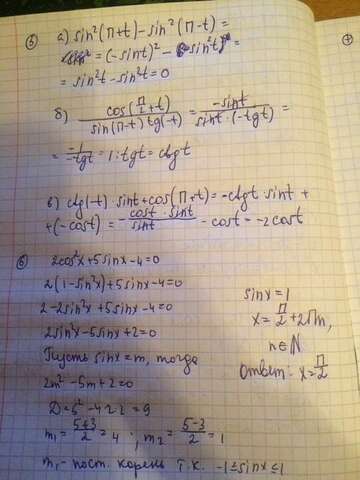 ⑤ а) sin²(П+t) - sin²(П-t) =
= (-sint)² - sin²t =
= sin²t - sin²t = 0
б) cos(П/2+t) / sin(П-t) tg(-t) = -sint / sint·(-tgt) =
= -1/-tgt = 1:tgt = ctgt
в) ctg(-t) · sint + cos(П+t) = -ctgt sint +
+ (-cost) = -cost · sint / sint - cost = -2cost
⑥ 2cos²x + 5sinx - 4 = 0
2(1-sin²x) + 5sinx - 4 = 0
2 - 2sin²x + 5sinx - 4 = 0
2sin²x - 5sinx + 2 = 0
Пусть sinx = m, тогда
2m² - 5m + 2 = 0
D = 5² - 4·2·2 = 9
m₁ = 5+3/2 = 4; m₂ = 5-3/2 = 1
m₁ - пост. корень т.к. -1≤sinx≤1
sinx = 1
x = П/2 + 2Пn,
n∈N
Ответ: x = П/2